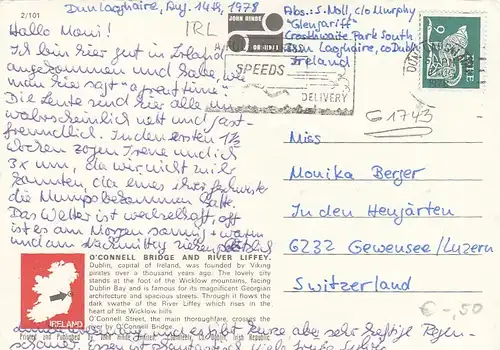 2/101
Dun Laoghaire, Aug. 14th, 1978
IRL
JOHN HINDE
ORIGINAL
Hallo Moni!
Ich bin hier gut in Irland
angekommen und habe, wie
man hier sagt "a great time".
Die Leute sind hier alle un-
wahrscheinlich nett und gast-
freundlich. In den ersten 1½
Wochen zogen Irene und ich
3x um, da wir nicht mehr
konnten, da eines ihrer
die Mumps bekommen hatte.
Das Wetter ist wechselhaft, oft
ist es am Morgen sonnig + warm
und am Nachmittag ziehen plötzlich
Abs.: S. Moll, c/o Murphy
"Glengariff"
Crosthwaite Park South
Dun Laoghaire, co Dublin
Ireland
SPEEDS
DELIVERY
6
G 1743
Miss
Monika Berger
In den Heugärten
6232 Geuensee/Luzern
Switzerland
€ -,50
IRELAND
O'CONNELL BRIDGE AND RIVER LIFFEY.
Dublin, capital of Ireland, was founded by Viking
pirates over a thousand years ago. The lovely city
stands at the foot of the Wicklow mountains, facing
Dublin Bay and is famous for its magnificent Georgian
architecture and spacious streets. Through it flows the
dark swathe of the River Liffey which rises in the
heart of the Wicklow hills
O'Connell Street, the main thoroughfare, crosses the
river by O'Connell Bridge.
und es gibt kurze aber sehr heftige Regen-
schauer. Essen ist